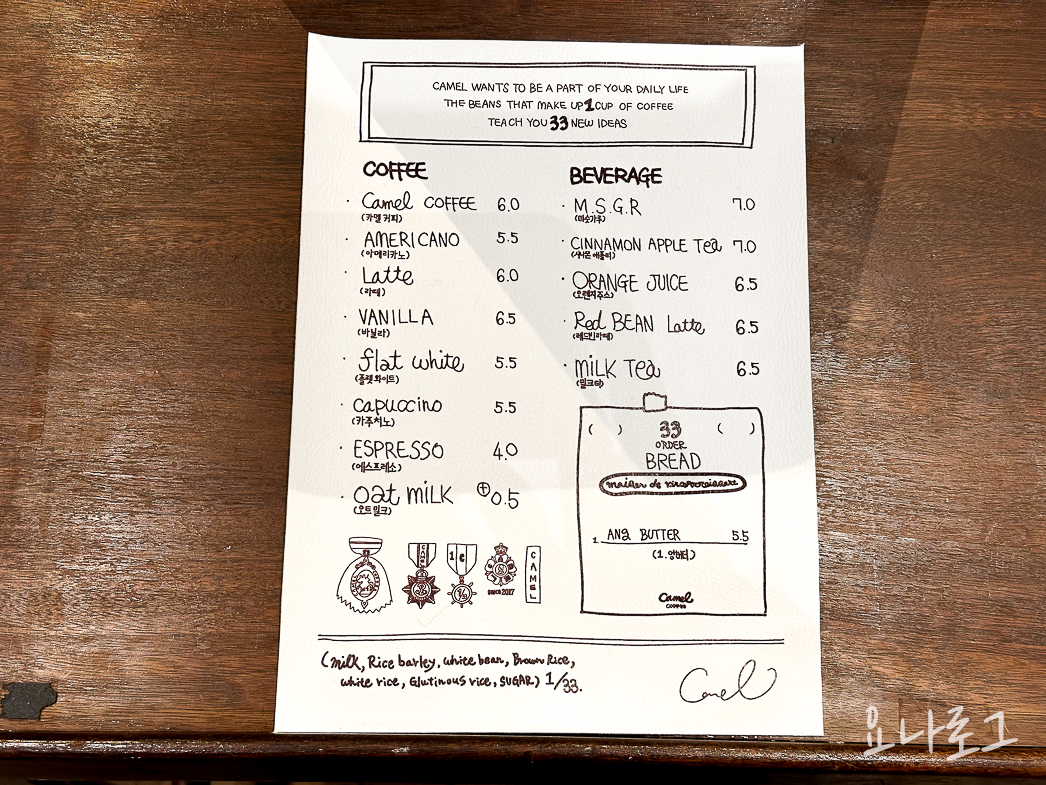 CAMEL WANTS TO BE A PART OF YOUR DAILY LIFE
THE BEANS THAT MAKE UP 1 CUP OF COFFEE
TEACH YOU 33 NEW IDEAS
COFFEE
· Camel COFFEE 6.0
(카멜 커피)
· AMERICANO 5.5
(아메리카노)
· Latte 6.0
(라떼)
· VANILLA 6.5
(바닐라)
· flat white 5.5
(플랫 화이트)
· capuccino 5.5
(카푸치노)
· ESPRESSO 4.0
(에스프레소)
· oat milk ⊕0.5
(오트 밀크)
BEVERAGE
· M.S.G.R 7.0
(미숫가루)
· CINNAMON APPLE Tea 7.0
(시나몬 애플티)
· ORANGE JUICE 6.5
(오렌지 주스)
· Red BEAN Latte 6.5
(레드빈 라떼)
· MILK Tea 6.5
(밀크티)
( ) 33 ( )
ORDER
BREAD
1. ANG BUTTER 5.5
(1. 앙버터)
Camel
COFFEE
CAMEL
1 C
SINCE 2017
CAMEL
(milk, Rice barley, white bean, Brown Rice,
white rice, Glutinous rice, SUGAR) 1/33.
Camel
요나로그